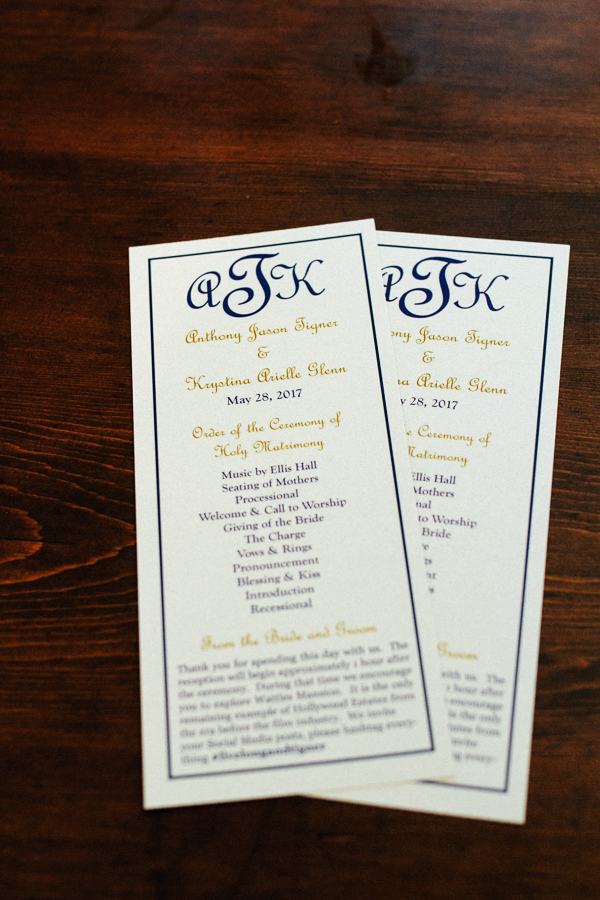 ATK
Anthony Jason Tigner
&
Krystina Arielle Glenn
May 28, 2017
Order of the Ceremony of
Holy Matrimony
Music by Ellis Hall
Seating of Mothers
Processional
Welcome & Call to Worship
Giving of the Bride
The Charge
Vows & Rings
Pronouncement
Blessing & Kiss
Introduction
Recessional
From the Bride and Groom
Thank you for spending this day with us. The
reception will begin approximately 1 hour after
the ceremony. During that time we encourage
you to explore Wattles Mansion. It is the only
remaining example of Hollywood Estates from
the era before the film industry. We invite
your Social Media posts, please hashtag every-
thing #livelongandtigner
TK
ny Jason Tigner
&
na Arielle Glenn
28, 2017
e Ceremony of
Matrimony
Ellis Hall
Mothers
nal
to Worship
Bride
e
s
nt
s
Groom
with us. The
1 hour after
encourage
is the only
states from
invite
every-